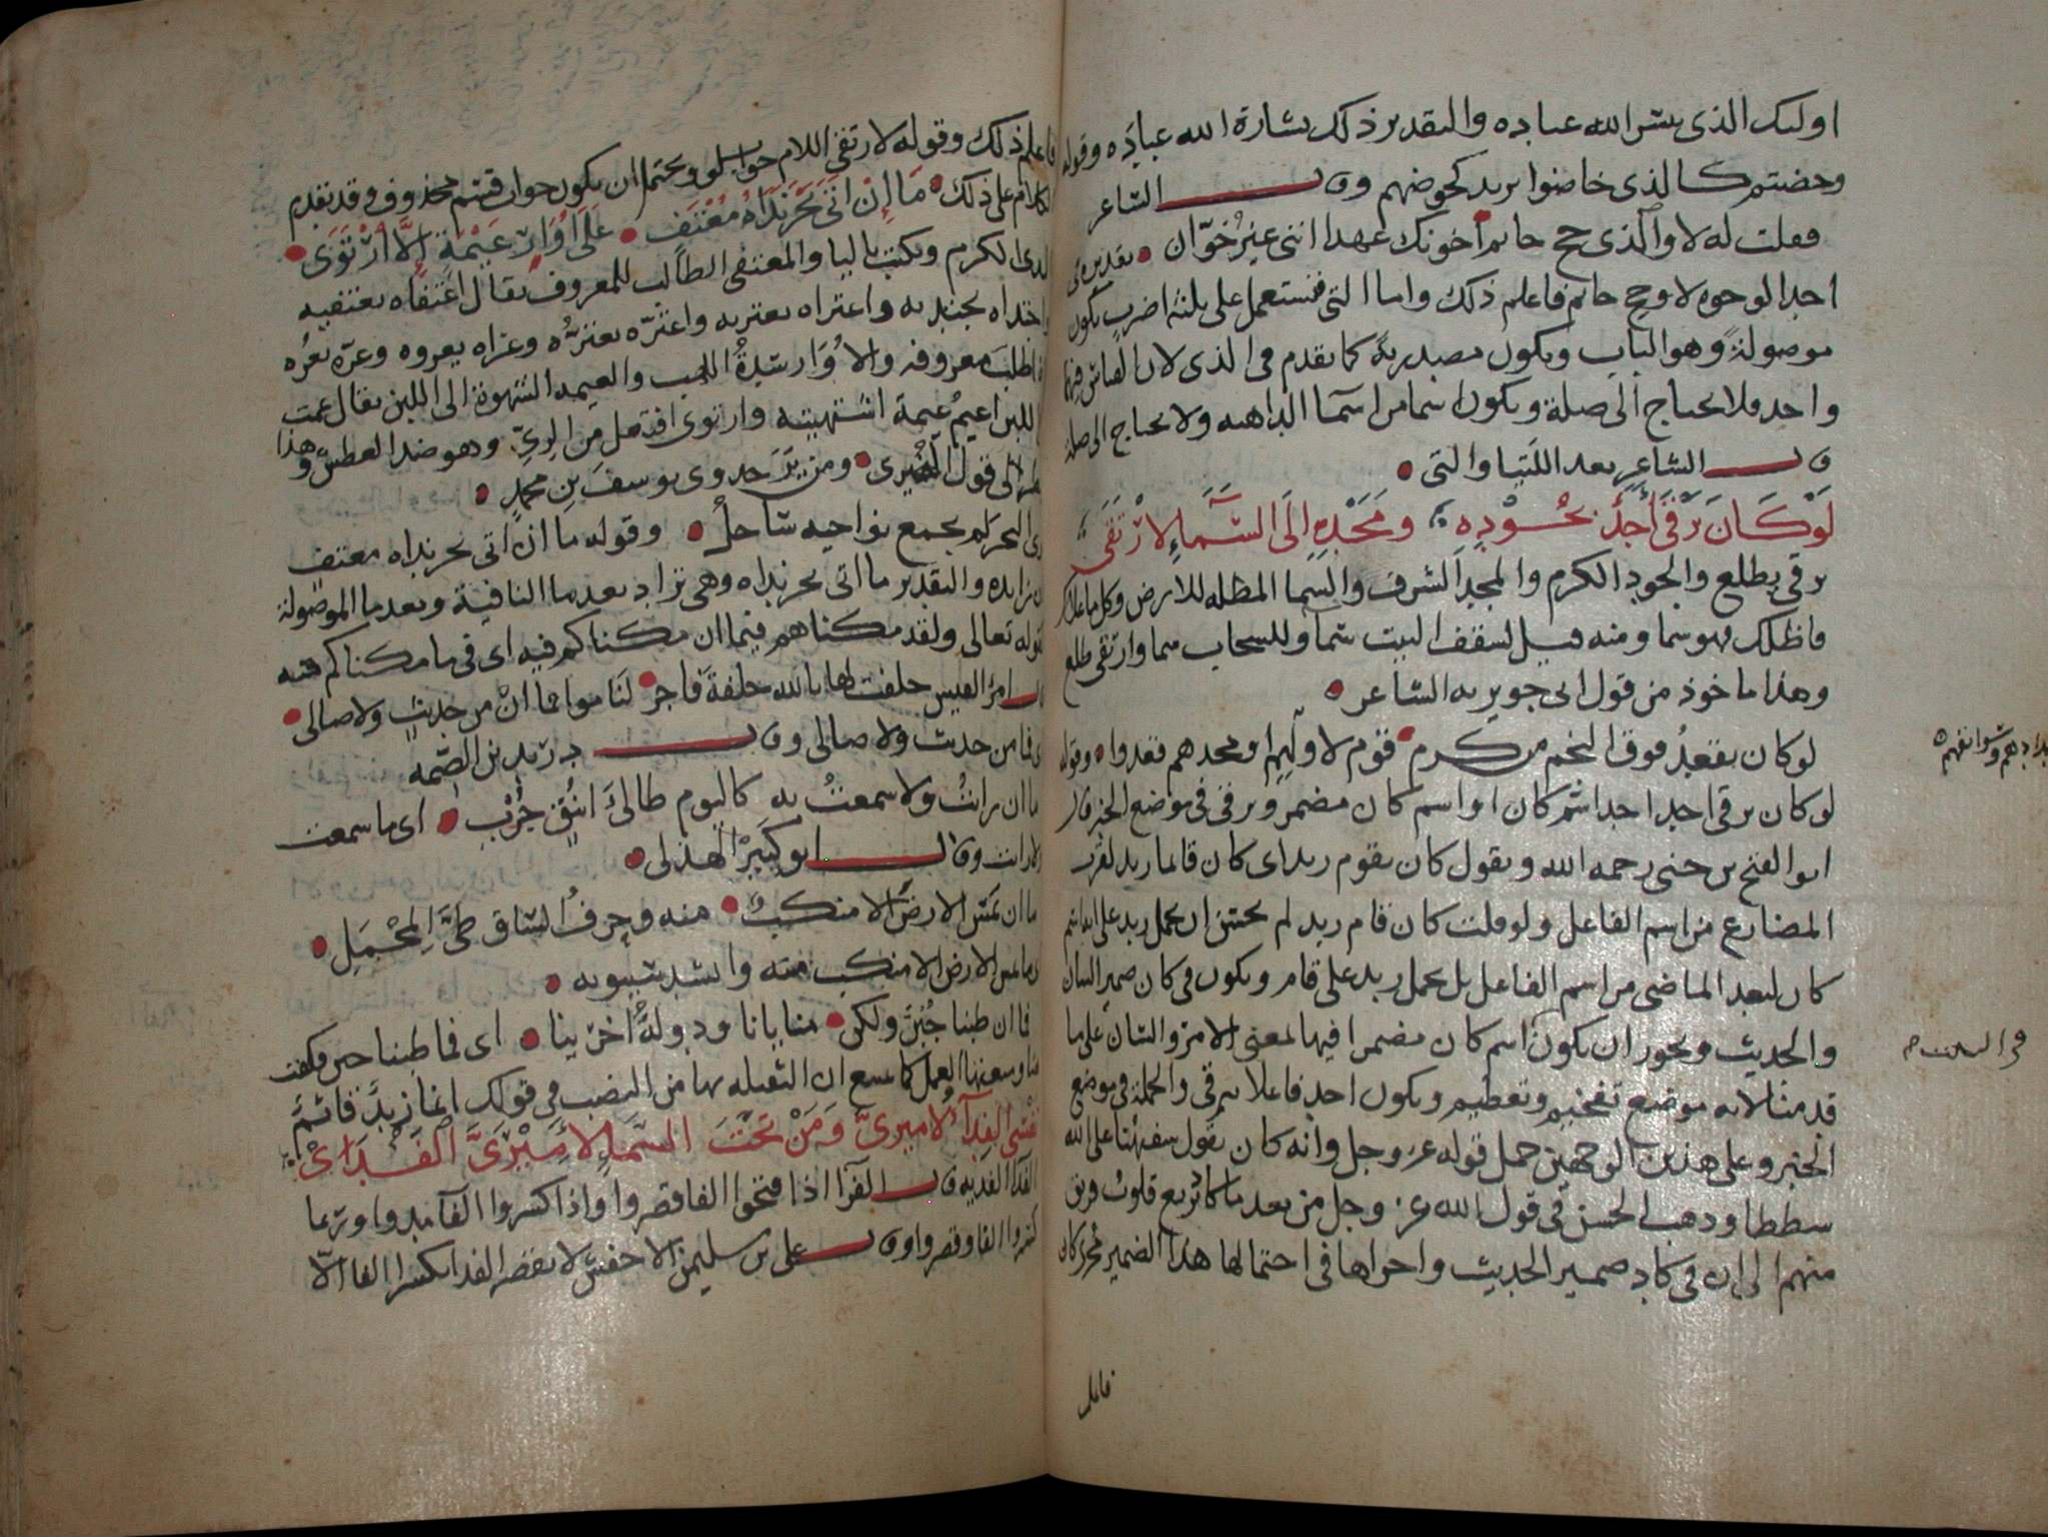 اولىك الذى يبشر الله عباده والتقدير ذلك بشارة الله عباده وقوله
وخضتم كالذى خاضوا يريد كخوضهم وقال الشاعر
فقلت له لا والذى حج حاتم أخونك عهدا اننى غير خوّان تقديره فى
احد الوجوه لا وحج حاتم فاعلم ذلك واما التى فتستعمل على ثلثة اضرب تكون
موصولة وهو الباب وتكون مصدرية كما تقدم فى الذى لان القياس فيهما
واحد فلا يحتاج الى صلة وتكون اسما من اسما الداهية ولا يحتاج الى صلة
قال الشاعر بعد اللتيا والتى
لَوْ كَانَ يَرْقَى أَحَدٌ بِجُودِهِ وَمَجْدِهِ إِلَى السَّمَاءِ لارْتَقَى
يرقى يطلع والجود الكرم والمجد الشرف والسما المظله للارض وكل ما علاك
فاظلك فهو سما ومنه قيل لسقف البيت سما وللسحاب سما وارتقى طلع
وهذا ماخوذ من قول ابى جويريه الشاعر
لو كان يقعد فوق النجم من كرم قوم لاولهم او مجدهم قعدوا وقوله
لو كان يرقى احد احد اسم كان او اسم كان مضمر ويرقى فى موضع الخبر قال
ابو الفتح بن جنى رحمه الله ويقول كان يقوم زيد اى كان قائما زيد لقرب
المضارع من اسم الفاعل ولو قلت كان قام زيد لم يحسن ان يحمل زيد على انه اسم
كان لبعد الماضى من اسم الفاعل بل يحمل زيد على قام ويكون فى كان ضمير الشان
والحديث ويجوز ان يكون اسم كان مضمرا فيها لمعنى الامر والشان على ما
قدمنا لانه موضع تفخيم وتعظيم ويكون احد فاعلا ليرقى والجملة فى موضع
الخبر وعلى هذين الوجهين حمل قوله عز وجل وانه كان يقول سفيهنا على الله
شططا وذهب ابو الحسن فى قول الله عز وجل من بعد ما كاد يزيغ قلوب فريق
منهم الى ان فى كاد ضمير الحديث واجراها فى احتمالها هذا الضمير مجرى كان
فاعلم
فاعلم ذلك وقوله لارتقى اللام جواب لو ويحتمل ان يكون جواب قسم محذوف وقد تقدم
الكلام على ذلك مَا إِنْ أَتَى بَحْرَ نَدَاهُ مُعْتَفٍ عَلَى أُوَارِ عَيْمَةٍ إِلَّا ارْتَوَى
الندى الكرم ويكتب باليا والمعتفى الطالب للمعروف يقال اعتفاه يعتفيه
واجتداه يجتديه واعتراه يعتريه واعترّه يعترّه وعراه يعروه وعرّه يعرّه
اذا طلب معروفه والاوار شدة اللهب والعيمه الشهوة الى اللبن يقال عمت
الى اللبن اعيم عيمة اشتهيته وارتوى افتعل من الرىّ وهو ضد العطش وهذا
نظر الى قول البحترى ومن ير جدوى يوسف بن محمد
يرى البحر لم يجمع نواحيه ساحل وقوله ما ان اتى بحر نداه معتف
ان زايده والتقدير ما اتى بحر نداه وهى تزاد بعد ما النافية وبعد ما الموصولة
كقوله تعالى ولقد مكناهم فيما ان مكناكم فيه اى فى ما مكناكم فيه
قال امرؤ القيس حلفت لها بالله حلفة فاجر لناموا فما انْ من حديثٍ ولا صالى
اى فما من حديث ولا صالى وقال دريد بن الصّمه
ما ان رايتُ ولا سمعتُ به كاليوم طالىَ اينُقٍ جُرْبِ اى ما سمعت
ولا رايت وقال ابو كبير الهذلى
ما ان يمس الارض الا منكب منه وحرفُ الساق طىَّ المِحْمَلِ
اى ما يمس الارض الا منكب منه وانشد سيبويه
فما ان طبنا جُبُنٌ ولكن منايانا ودولةُ اخرينا اى فما طبنا جبن وكفت
ما ومنعتها العمل كما تمنع ان الثقيله بها من النصب فى قولك انما زيدٌ قائمٌ
نَفْسِى الفِدَآءُ لأَمِيرِىَّ وَمَنْ تَحْتَ السَّمَاءِ لأَمِيْرَىَّ الفَدَاىْ
الفدا الفدية قال الفرّا اذا فتحوا الفا قصروا واذا كسروا الفآ مدوا وربما
كسروا الفا وقصروا وقال على بن سليمن الاخفش لا يقصر الفدا بكسر الفا الّا